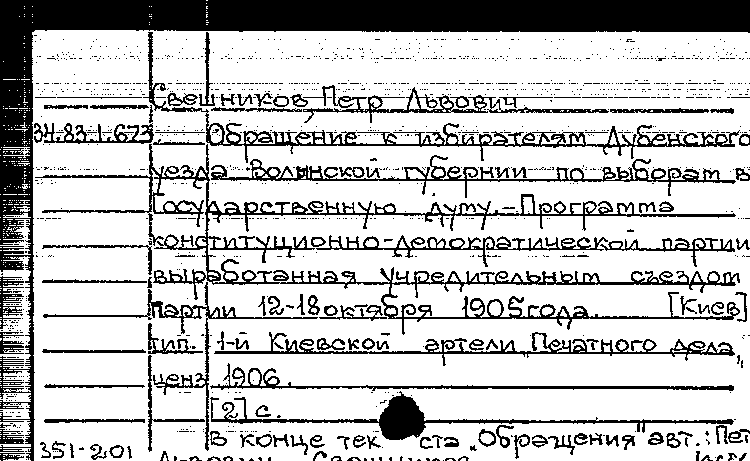 Свешников, Петр Львович.
34.83.1.673. Обращение к избирателям Дубенского
уезда Волынской губернии по выборам в
Государственную думу.-Программа
конституционно-демократической партии
выработанная учредительным съездом
партии 12-18 октября 1905 года. [Киев]
тип. 1-й Киевской артели „Печатного дела"
ценз. 1906.
[2] с.
В конце тек ста „Обращения" авт.: Пет
351-201 Львович Свешников